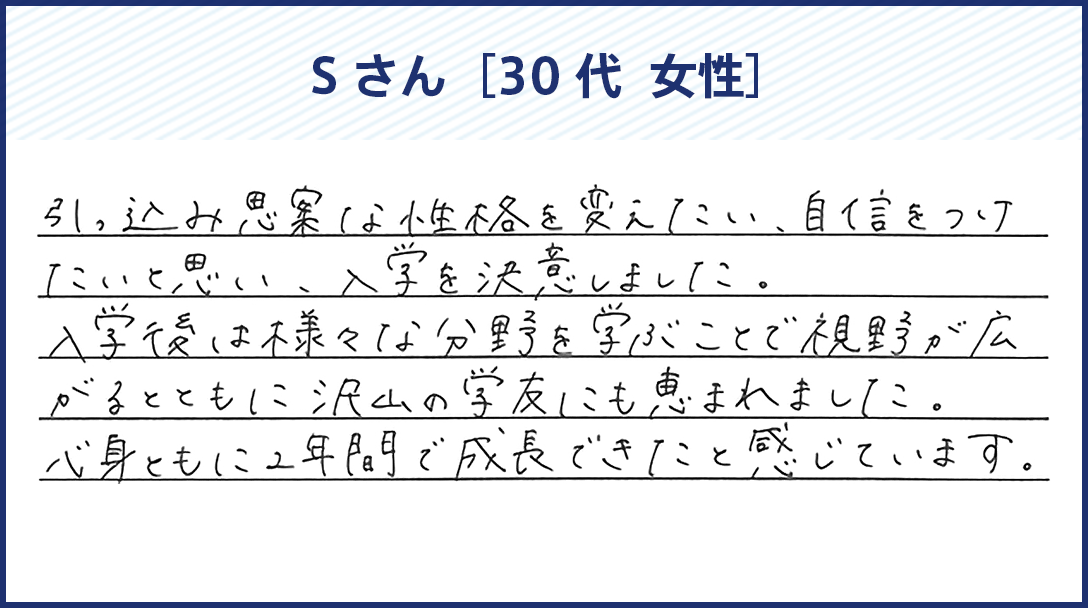 Sさん［30代 女性］
引っ込み思案な性格を変えたい、自信をつけ
たいと思い、入学を決意しました。
入学後は様々な分野を学ぶことで視野が広
がるとともに沢山の学友にも恵まれました。
心身ともに2年間で成長できたと感じています。